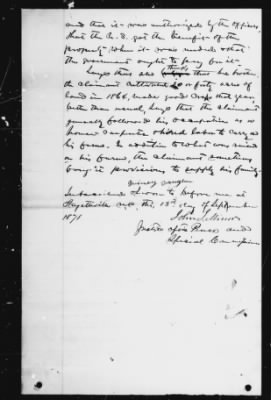 and that it was authorized by the officers,
that the U.S. got the benefit of the
property. when it was needed & that
the government ought to pay for it.
Says that also thinks that his brother,
the claimant cultivated or forty acres of
land in 1864, made good crops that year
better than usual, Says that the claimant
generally followed his occupation as a
house carpenter & hired labor to carry on
his farm. In addition to what was raised
on his farm, the claimant sometimes
bought provisions to supply his family.
Quincy Vaughn
Subscribed & Sworn to before me at
Fayetteville Ark, this 13th day of September
1871
John
Justice of the Peace and
Special Commissioner